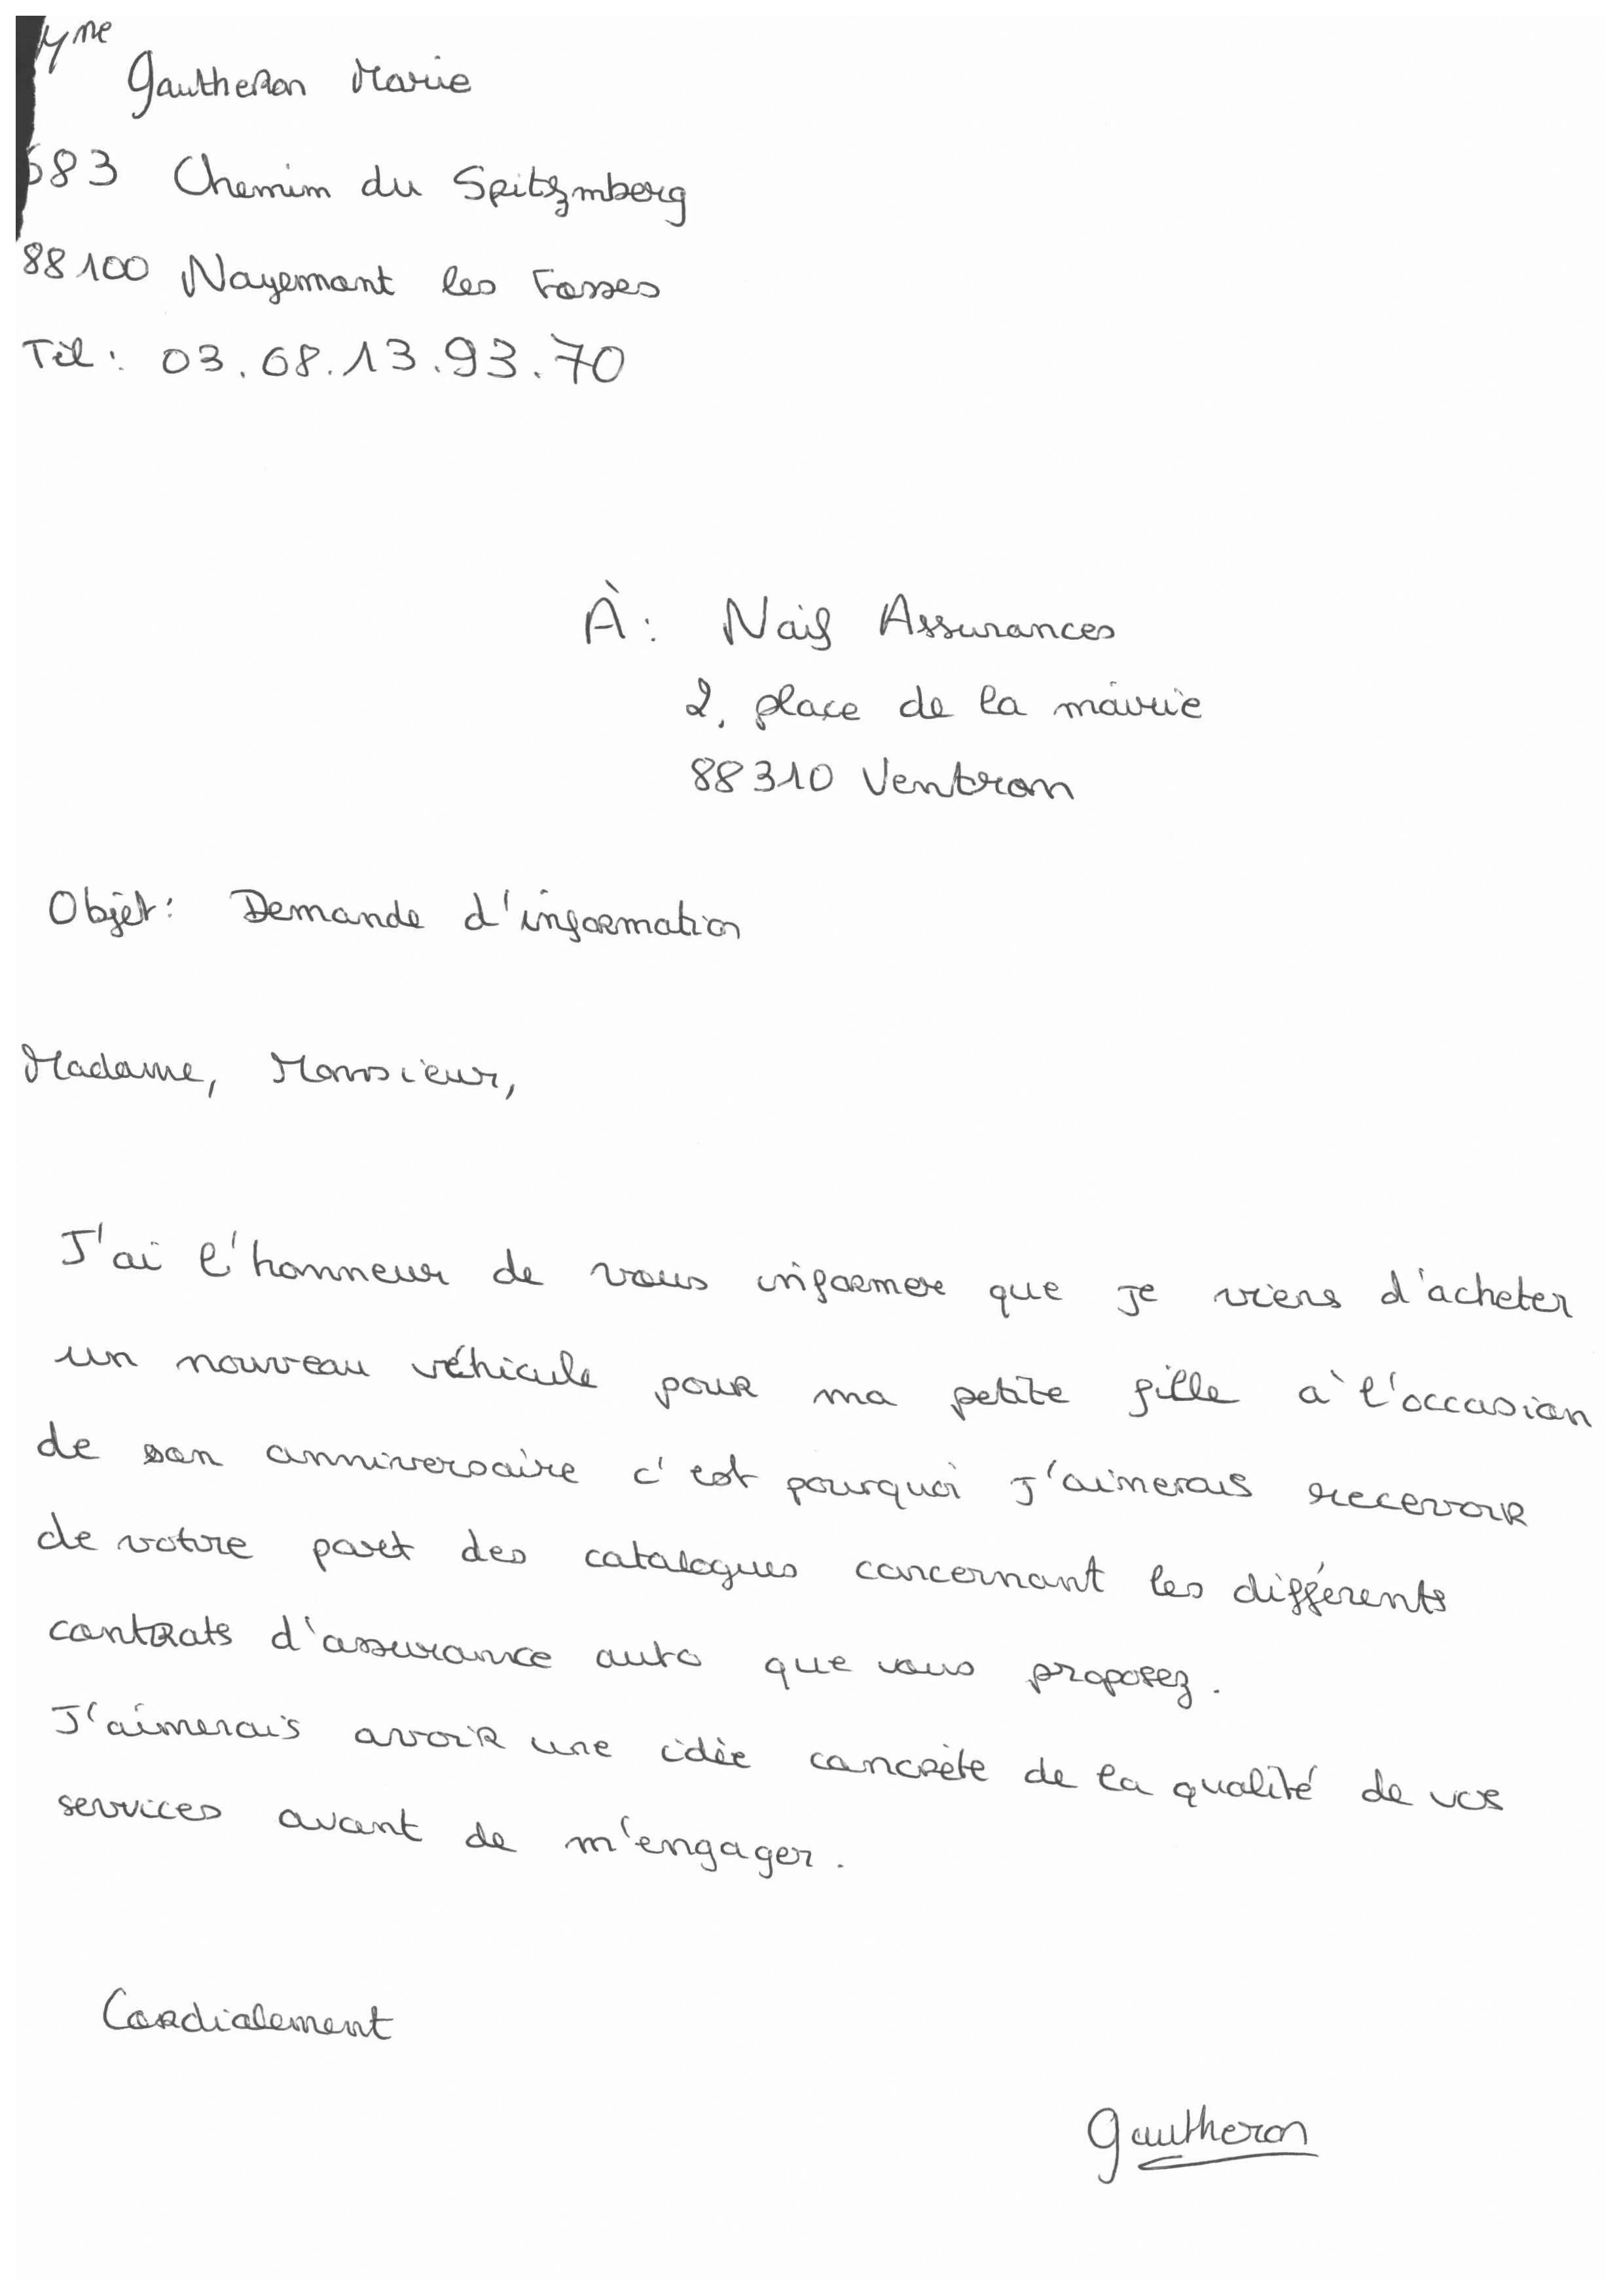 Mme
Gautheron Marie
683 Chemin du Spitzmberg
88100 Nayemont les Fosses
Tél : 03.68.13.93.70
À : Naif Assurances
2, place de la mairie
88310 Ventron
Objet : Demande d'information
Madame, Monsieur,
J'ai l'honneur de vous informer que je viens d'acheter
un nouveau véhicule pour ma petite fille à l'occasion
de son anniversaire c'est pourquoi j'aimerais recevoir
de votre part des catalogues concernant les différents
contrats d'assurance auto que vous proposez.
J'aimerais avoir une idée concrète de la qualité de vos
services avant de m'engager.
Cordialement
Gautheron